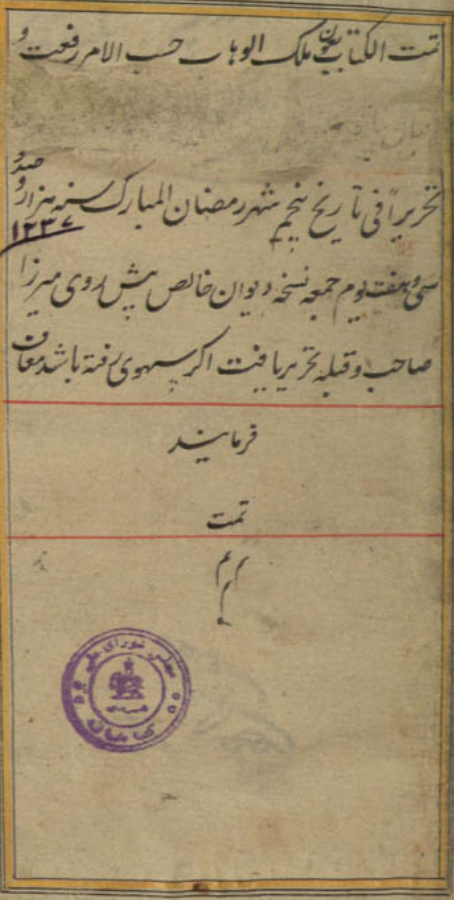 تمت الکتاب بعون ملک الوهاب حسب الامر رفعت و
تحریراً فی تاریخ پنجم شهر رمضان المبارک سنه هزار و صد و
۱۲۳۷
سی و هفت یوم جمعه نسخه دیوان خالص پیش روی میرزا
صاحب و قبله تحریر یافت اکر سهوی رفته باشد معاف
فرمایند
تمت
م م م
مجلس شورای ملی
کتابخانه